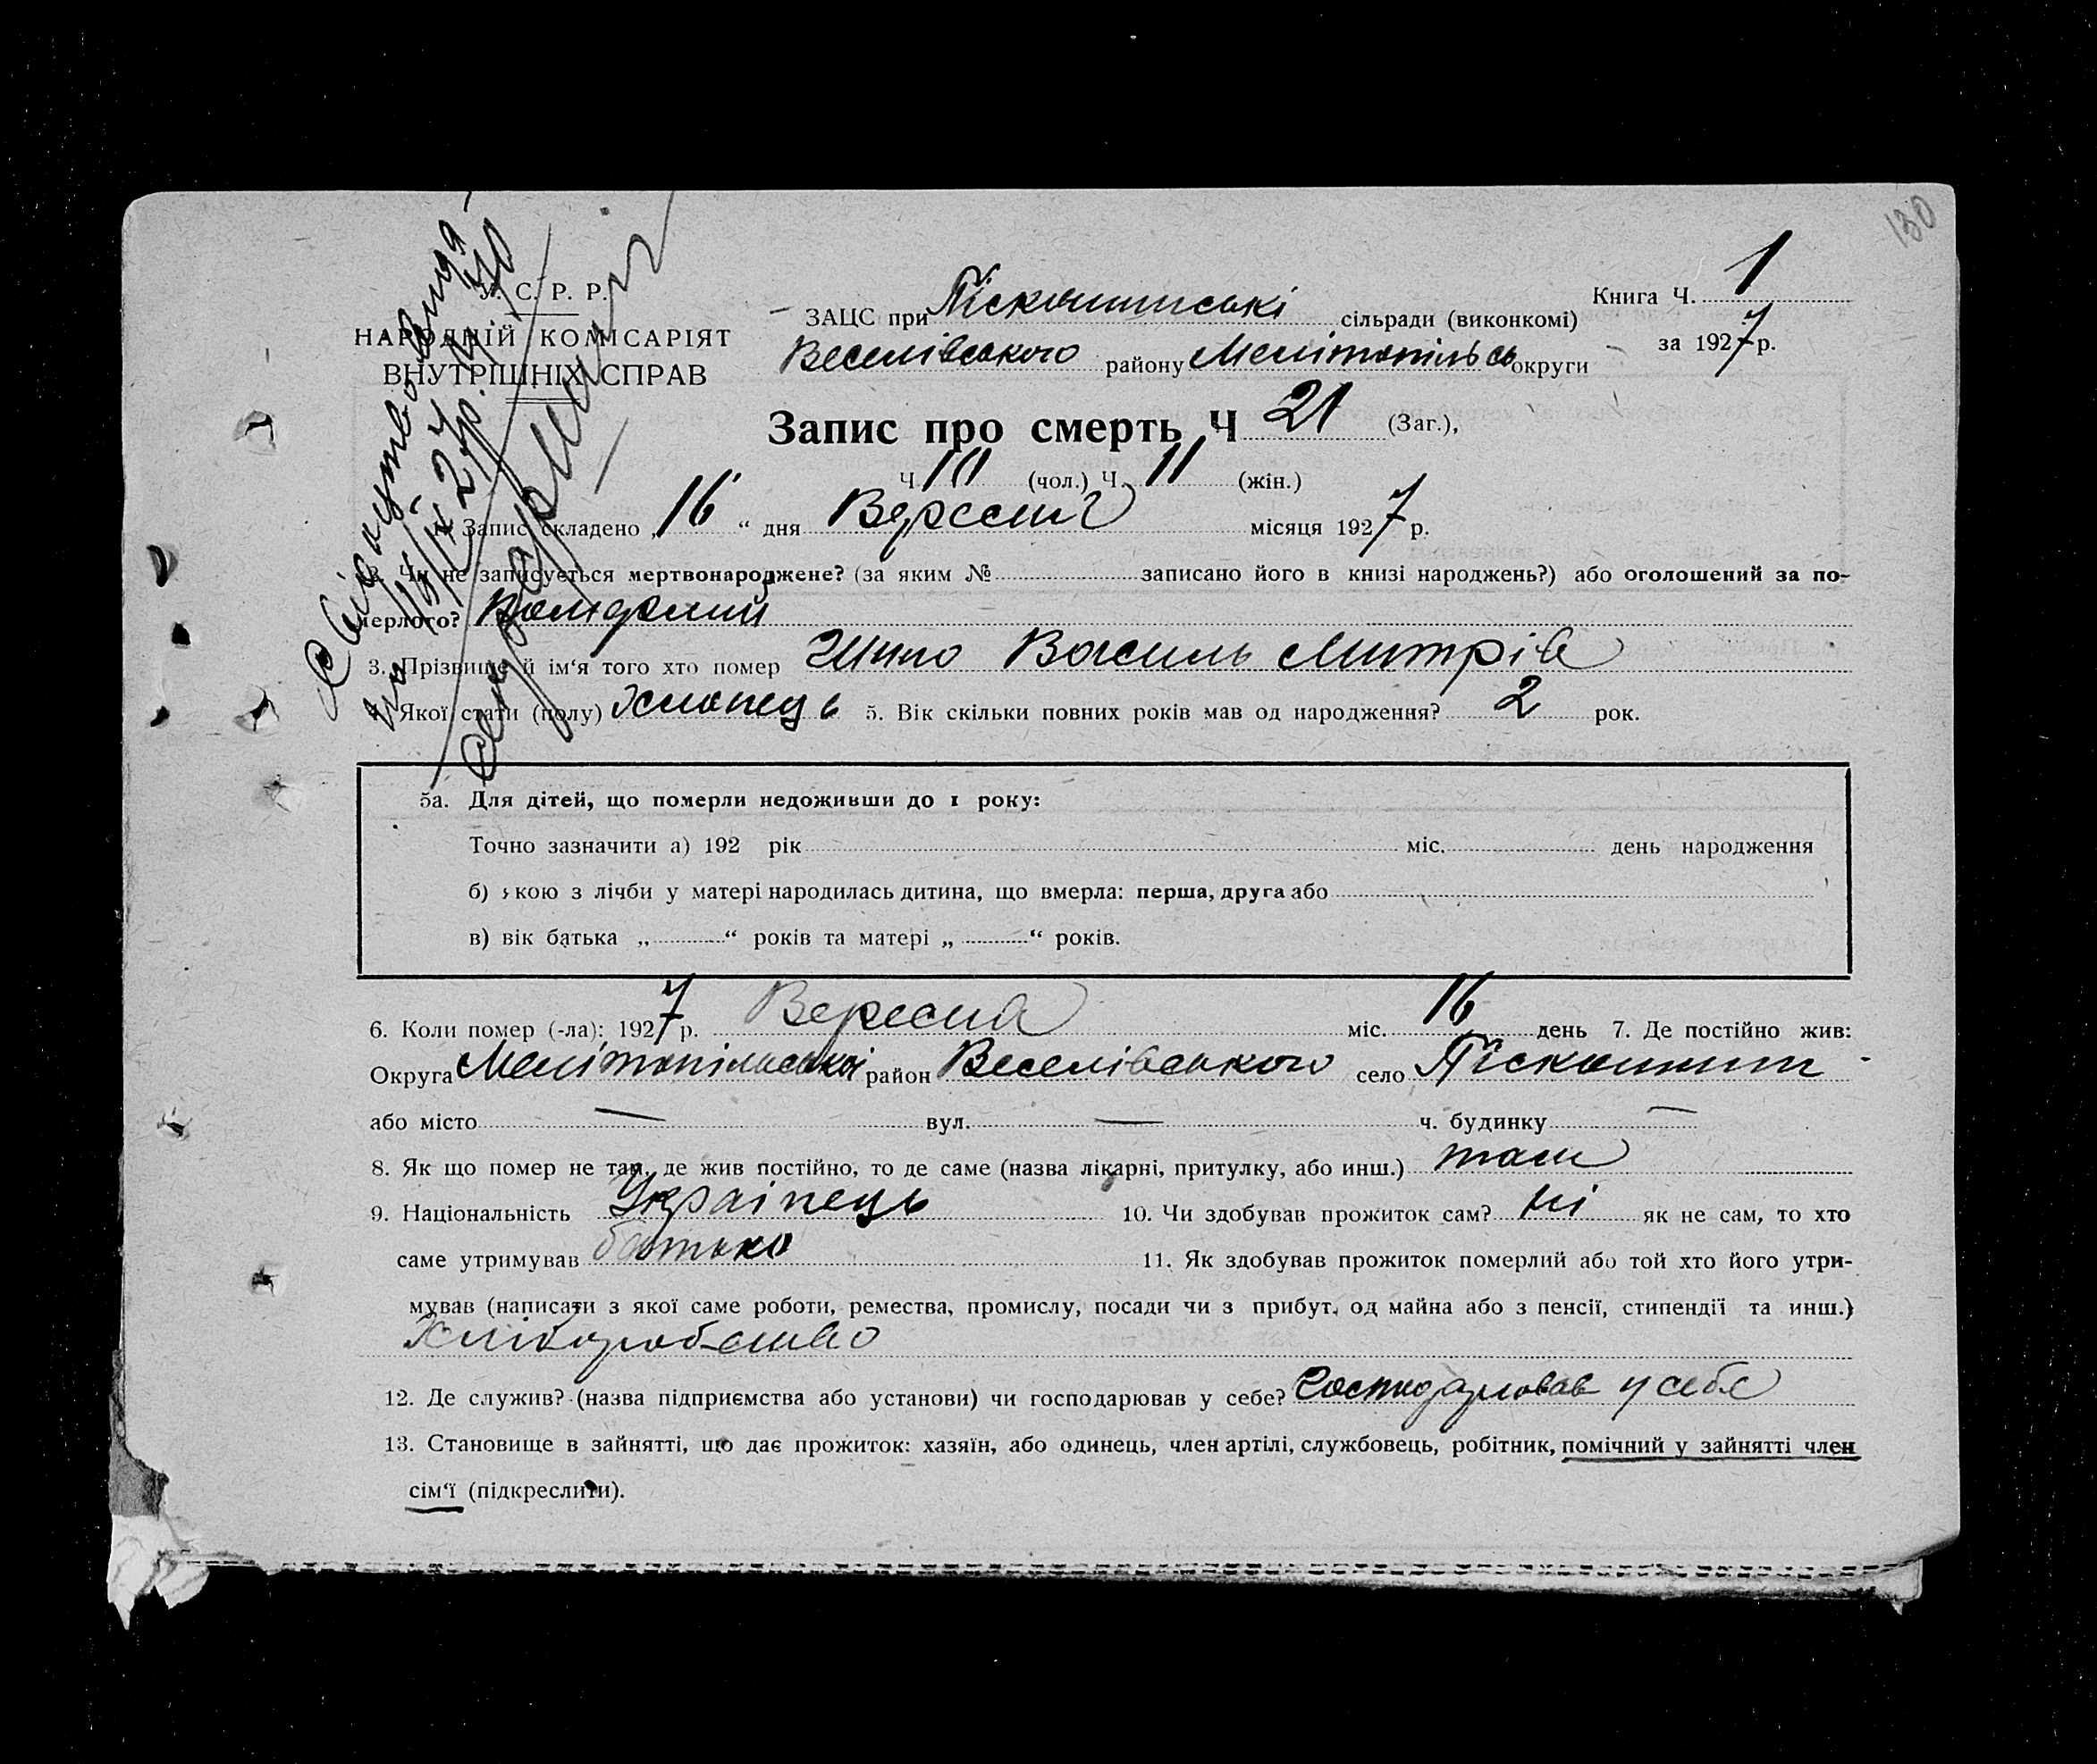 130
У. С. Р. Р.
НАРОДНІЙ КОМІСАРІЯТ
ВНУТРІШНІХ СПРАВ
Книга Ч. 1
за 1927 р.
ЗАЦС при Піскошинські сільради (виконкомі)
Веселівського району Мелітопільсь округи
Запис про смерть Ч 21 (Заг.),
Ч 10 (чол.) Ч. 11 (жін.)
Свідоцтво видa-
но 16/IX 27 р. Ч 40
1. Запис складено „ 16 “ дня Вересня місяця 1927 р.
2. Чи не записується мертвонароджене? (за яким № записано його в книзі народжень?) або оголошений за по-
мерлого?
3. Прізвище й ім‘я того хто помер Василь Митрів
4. Якої стати (полу) Хлопець 5. Вік скільки повних років мав од народження? 2 рок.
5а. Для дітей, що померли недоживши до 1 року:
Точно зазначити а) 192 рік міс. день народження
б) якою з лічби у матері народилась дитина, що вмерла: перша, друга або
в) вік батька „ “ років та матері „ “ років.
6. Коли помер (-ла): 1927 р. Вересня міс. 16 день 7. Де постійно жив:
Округа Мелітопільської район Веселівського село Піскошин
або місто — вул. — ч. будинку —
8. Як що помер не там, де жив постійно, то де саме (назва лікарні, притулку, або инш.) там
9. Національність Українець 10. Чи здобував прожиток сам? ні як не сам, то хто
саме утримував батько 11. Як здобував прожиток померлий або той хто його утри-
мував (написати з якої саме роботи, ремества, промислу, посади чи з прибут. од майна або з пенсії, стипендії та инш.)
Хліборобство
12. Де служив? (назва підприємства або установи) чи господарював у себе? Господарював у себе
13. Становище в зайнятті, що дає прожиток: хазяїн, або одинець, член артілі, службовець, робітник, помічний у зайнятті член
сім‘ї (підкреслити).